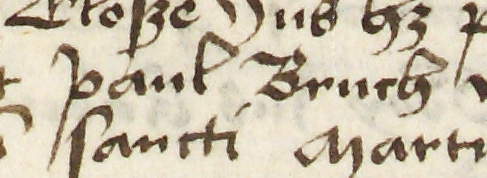 Cloße Hus hꝫ
paul Bruch
sancti Marti